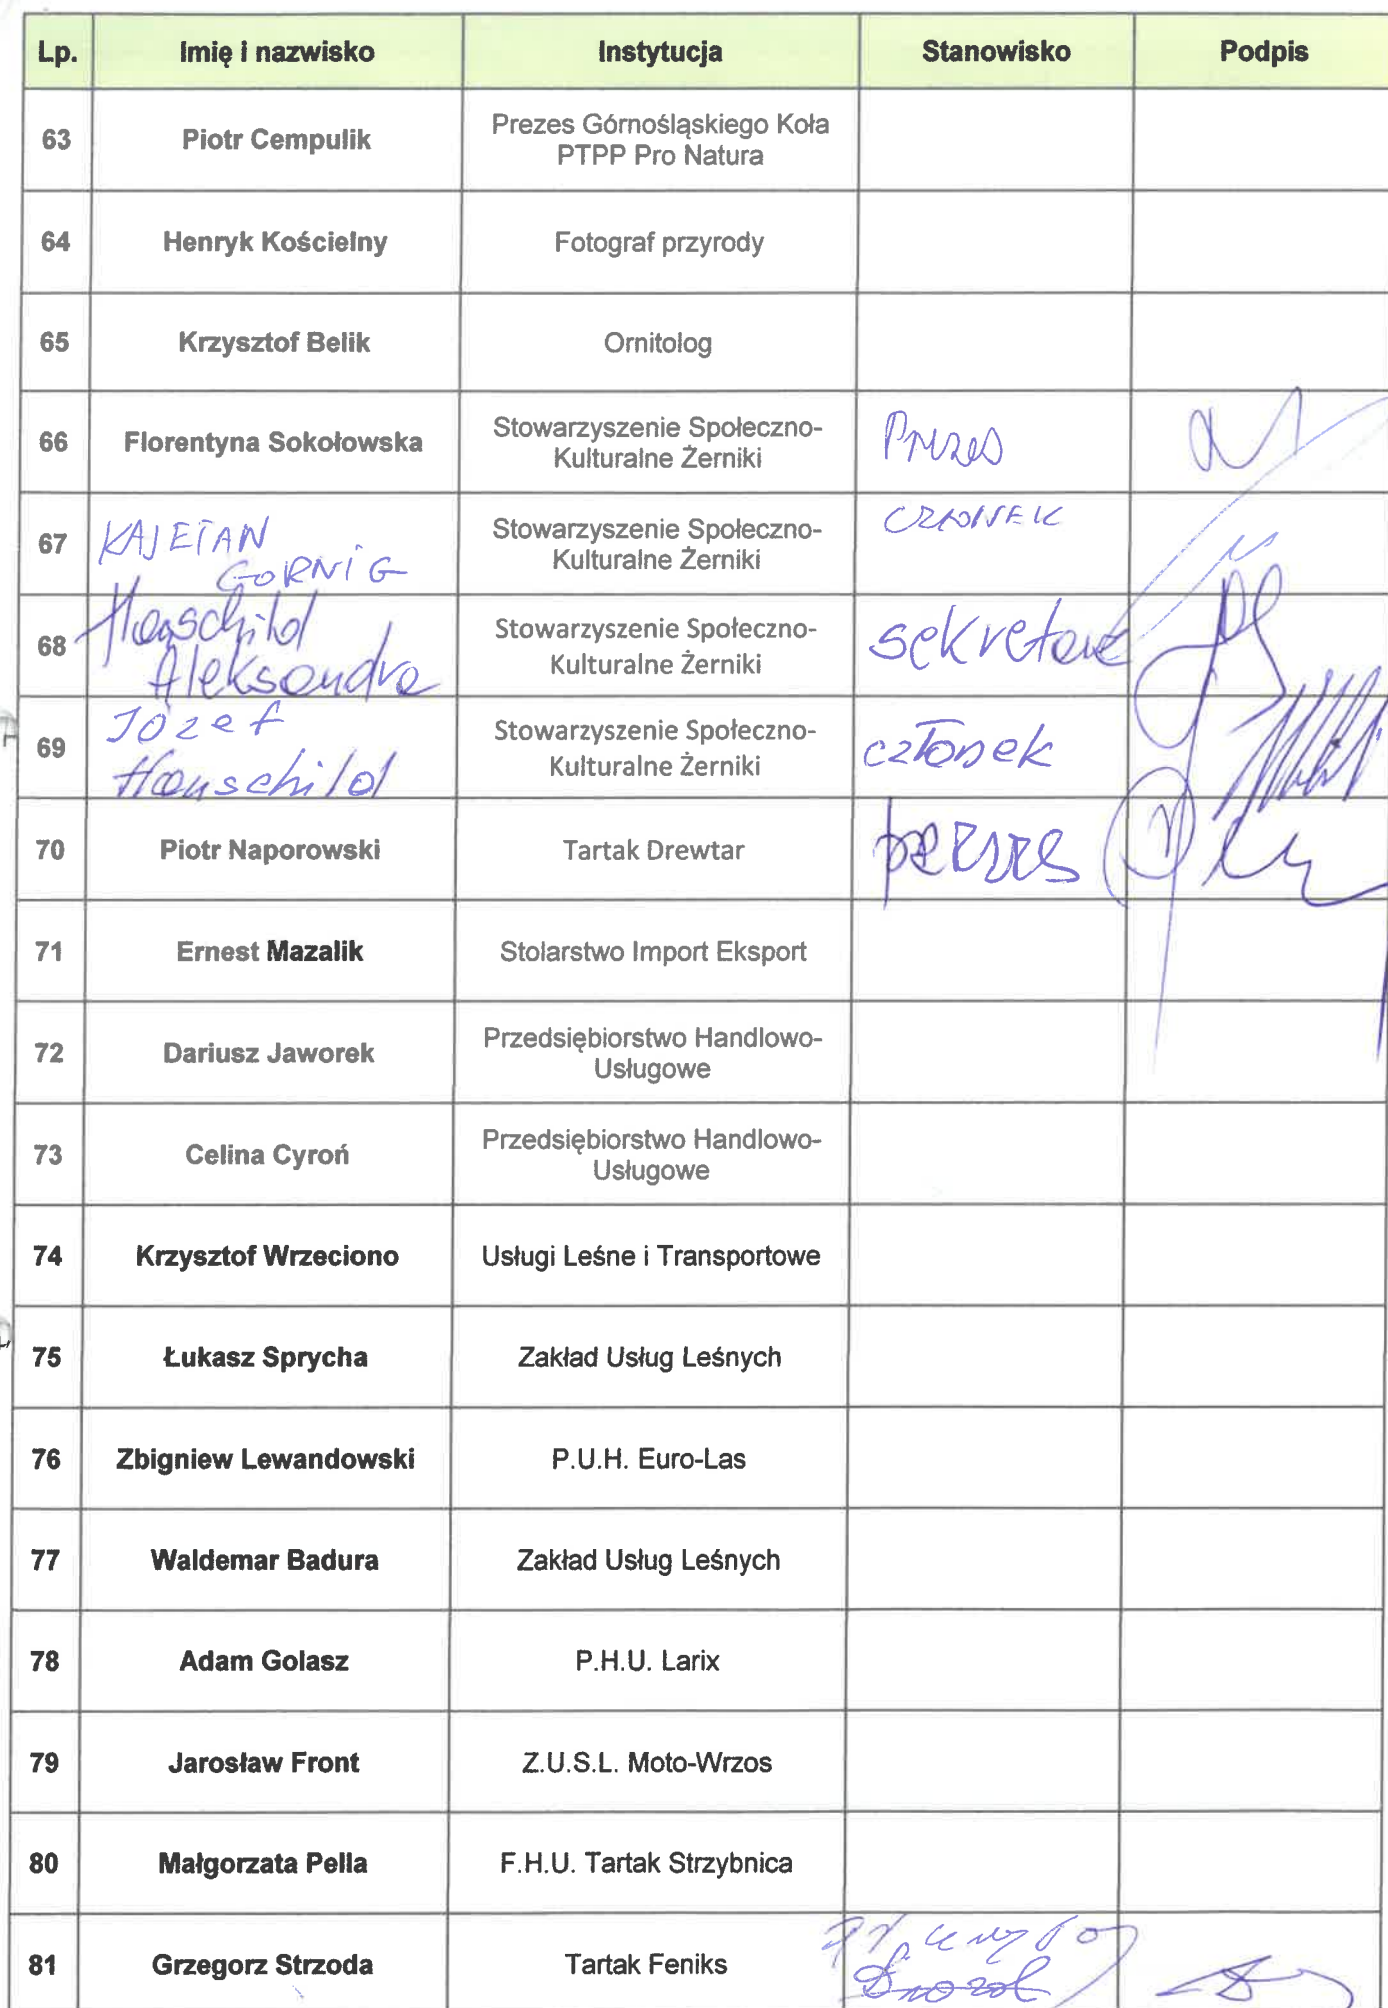 Lp. Imię i nazwisko Instytucja Stanowisko Podpis
63 Piotr Cempulik Prezes Górnośląskiego Koła
PTPP Pro Natura
64 Henryk Kościelny Fotograf przyrody
65 Krzysztof Belik Ornitolog
66 Florentyna Sokołowska Stowarzyszenie Społeczno-
Kulturalne Żerniki Prezes
67 KAJETAN Stowarzyszenie Społeczno- CZŁONEK
GORNIG Kulturalne Żerniki
68 Hanschild Stowarzyszenie Społeczno- sekretarz
Aleksandra Kulturalne Żerniki
69 Józef Stowarzyszenie Społeczno- członek
Hanschild Kulturalne Żerniki
70 Piotr Naporowski Tartak Drewtar prezes
71 Ernest Mazalik Stolarstwo Import Eksport
72 Dariusz Jaworek Przedsiębiorstwo Handlowo-
Usługowe
73 Celina Cyroń Przedsiębiorstwo Handlowo-
Usługowe
74 Krzysztof Wrzeciono Usługi Leśne i Transportowe
75 Łukasz Sprycha Zakład Usług Leśnych
76 Zbigniew Lewandowski P.U.H. Euro-Las
77 Waldemar Badura Zakład Usług Leśnych
78 Adam Golasz P.H.U. Larix
79 Jarosław Front Z.U.S.L. Moto-Wrzos
80 Małgorzata Pella F.H.U. Tartak Strzybnica
81 Grzegorz Strzoda Tartak Feniks